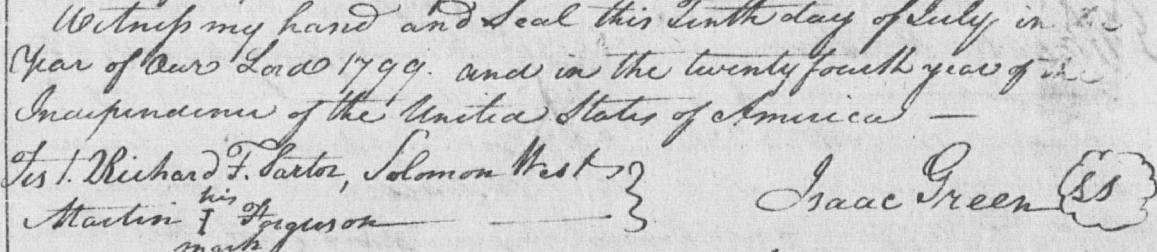 Witness my hand and Seal this Tenth day of July in the
Year of Our Lord 1799. and in the twenty fourth year of the
Independence of the United States of America —
Test. Richard F. Sartor, Solomon West
Isaac Green SS
his
Martin I Ferguson
mark